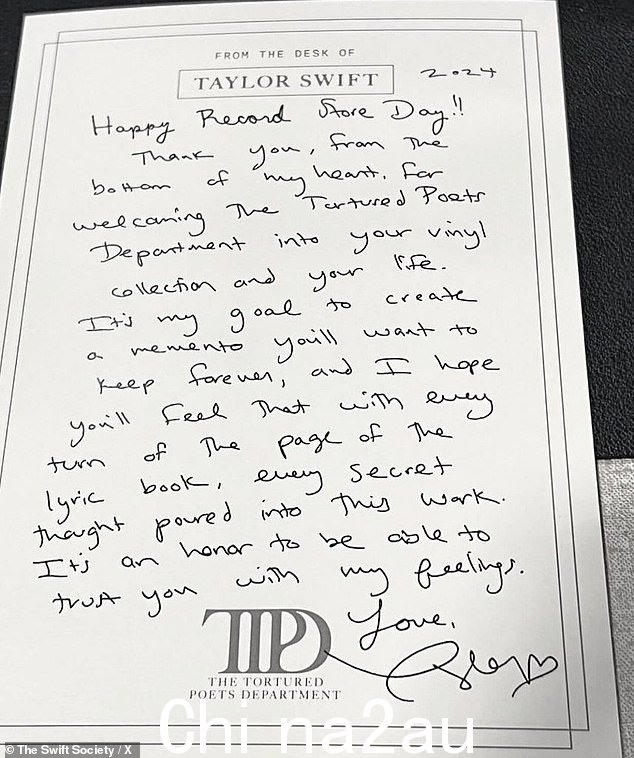 FROM THE DESK OF
TAYLOR SWIFT
2024
Happy Record Store Day!!
Thank you, from the
bottom of my heart, for
welcoming The Tortured Poets
Department into your vinyl
collection and your life.
It's my goal to create
a memento you'll want to
keep forever, and I hope
you'll feel that with every
turn of the page of the
lyric book, every secret
thought poured into this work.
It's an honor to be able to
trust you with my feelings.
Love,
TTPD
THE TORTURED
POETS DEPARTMENT
Chi na2au
© The Swift Society / X